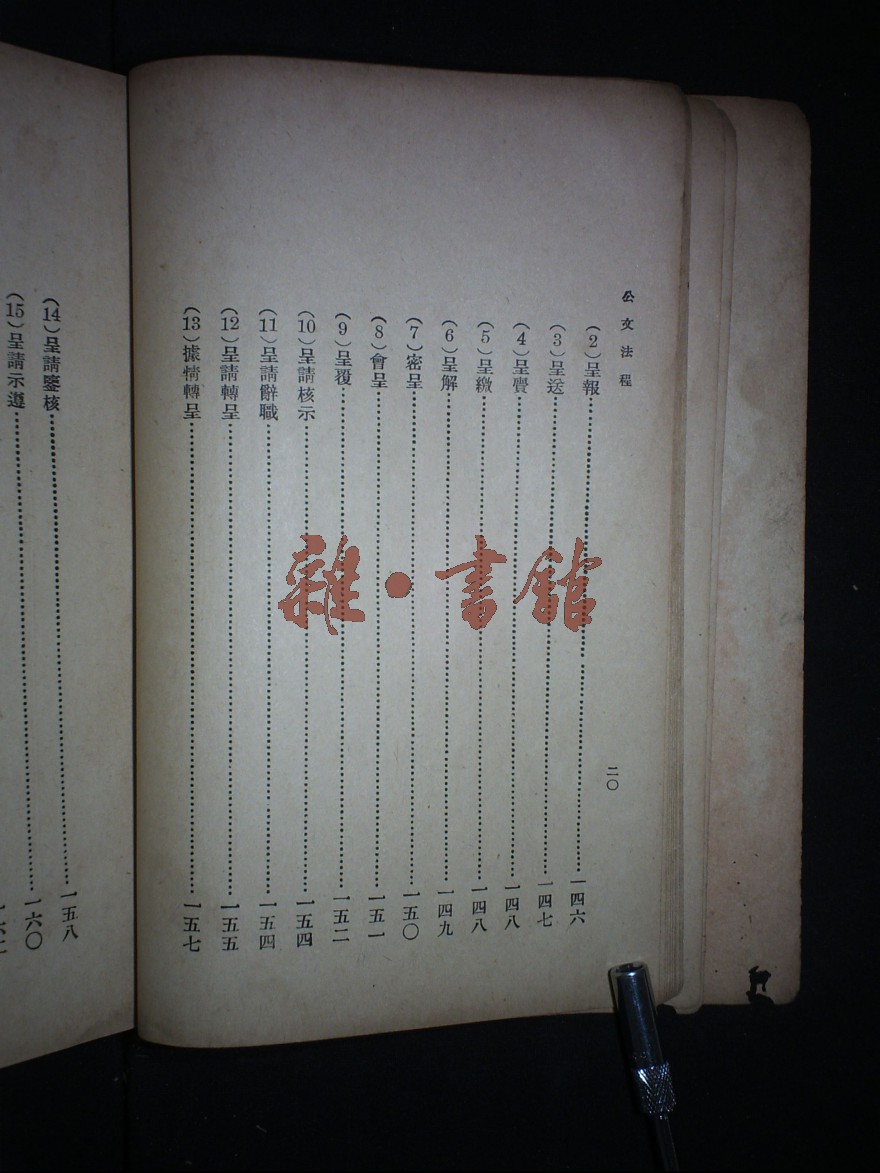 公文法程
二〇
(2)呈報 一四六
(3)呈送 一四七
(4)呈賫 一四八
(5)呈繳 一四八
(6)呈解 一四九
(7)密呈 一五〇
(8)會呈 一五一
(9)呈覆 一五二
(10)呈請核示 一五四
(11)呈請辭職 一五四
(12)呈請轉呈 一五五
(13)據情轉呈 一五七
(14)呈請鑒核 一五八
(15)呈請示遵 一六〇
雜·書館